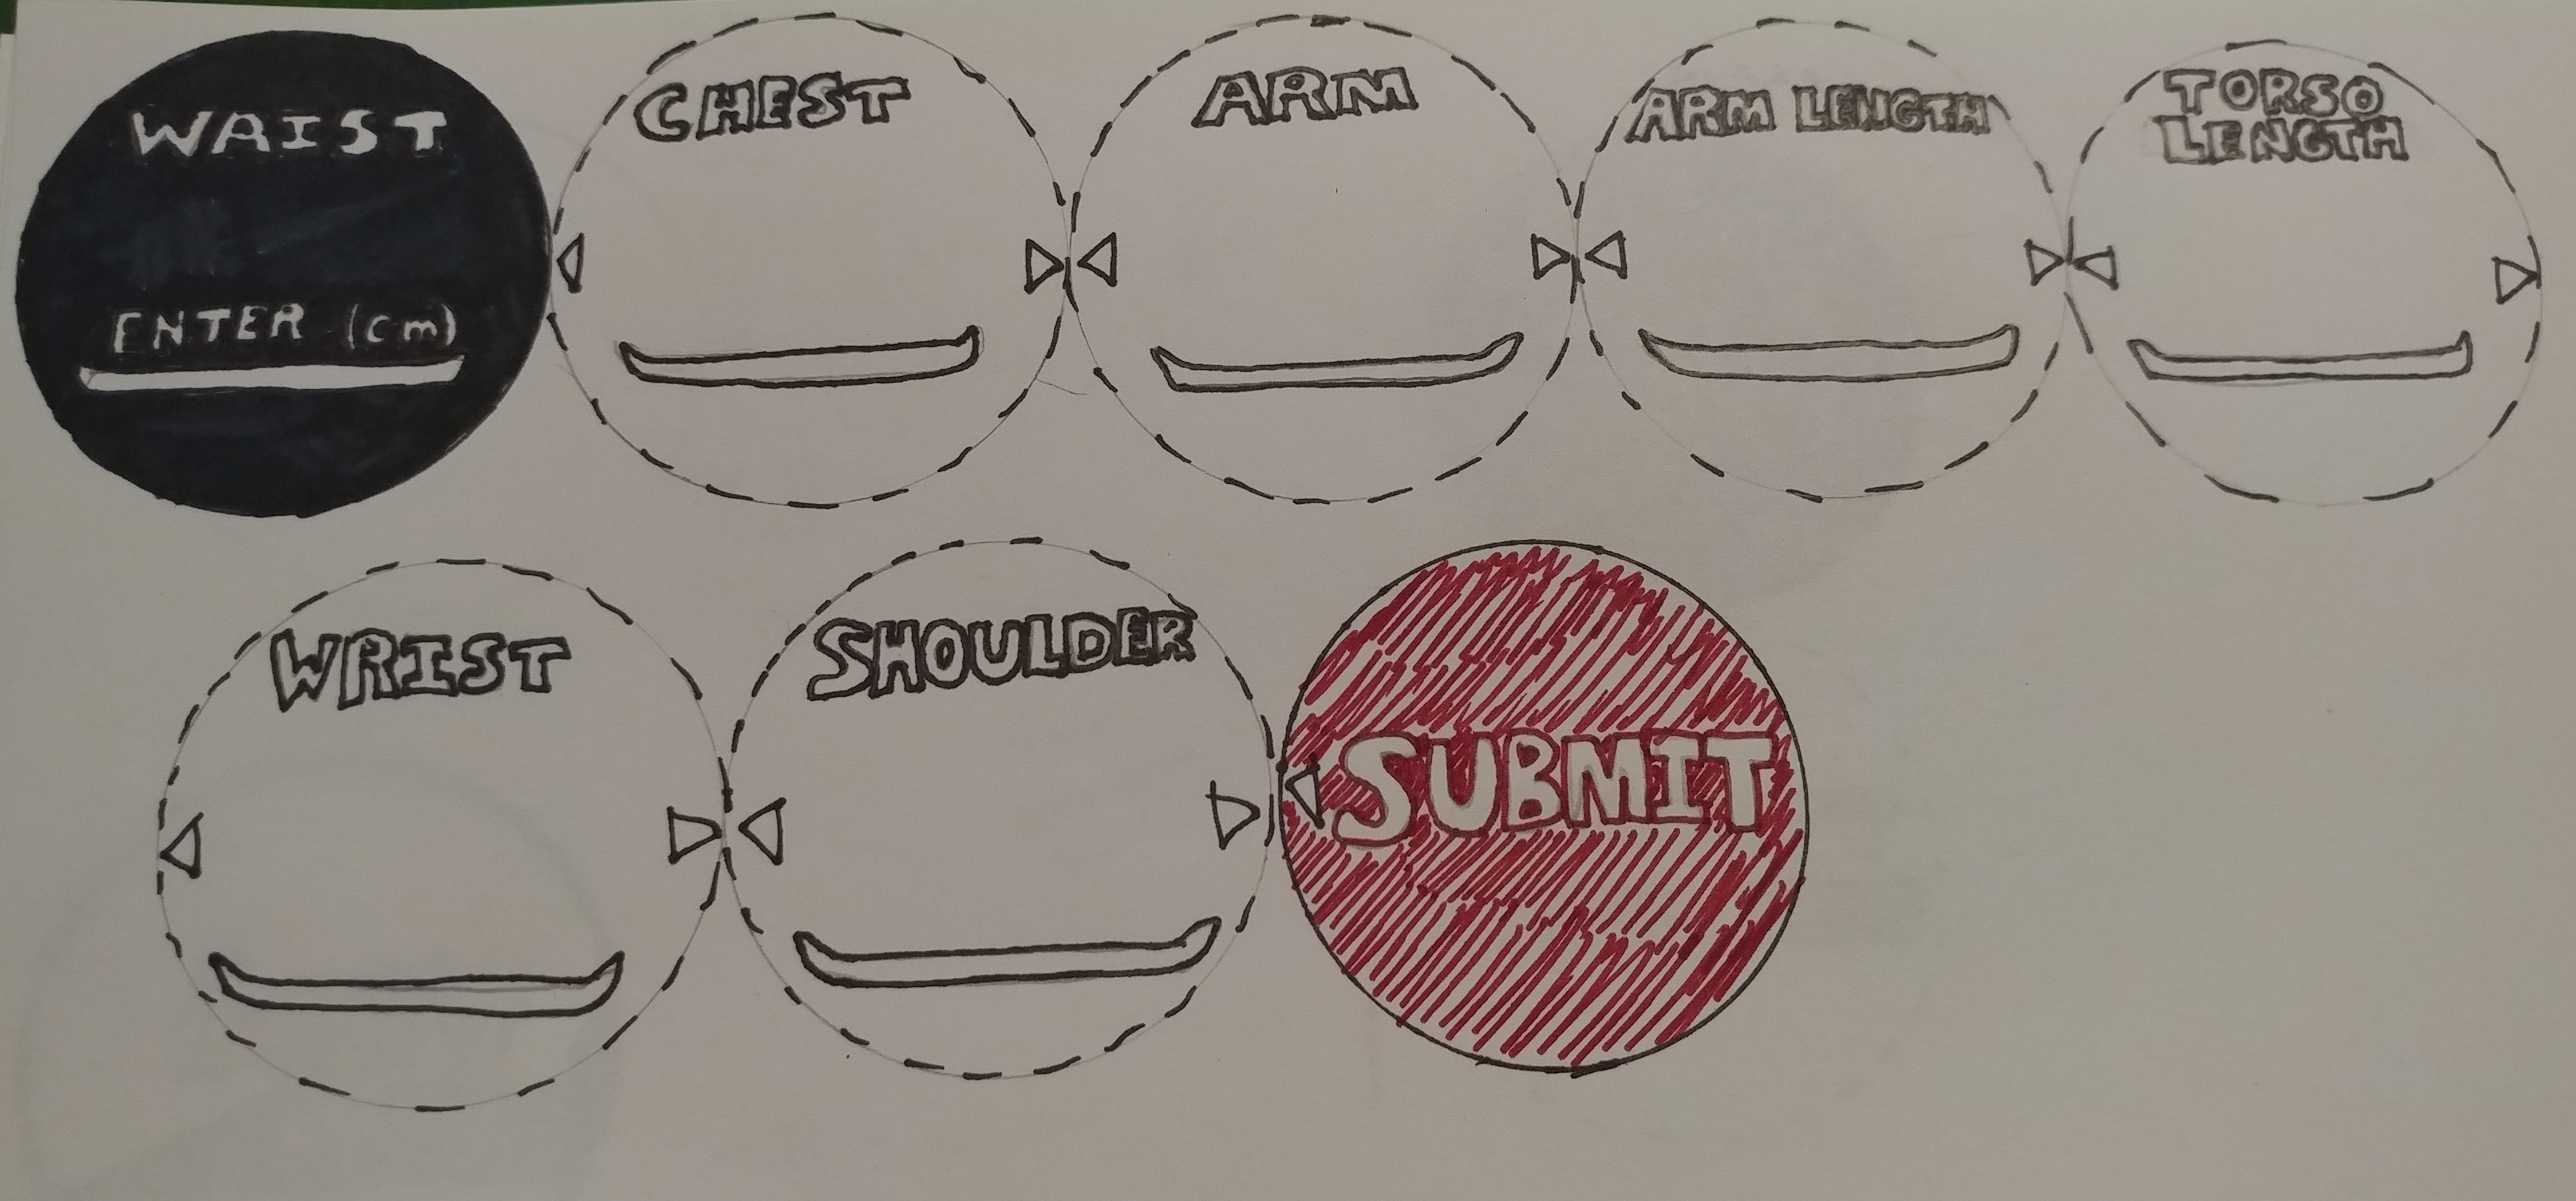 WAIST
ENTER (cm)
CHEST
ARM
ARM LENGTH
TORSO
LENGTH
WRIST
SHOULDER
SUBMIT